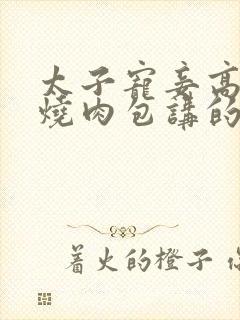 太子寵妾高
燒肉包講的
著火的橙子